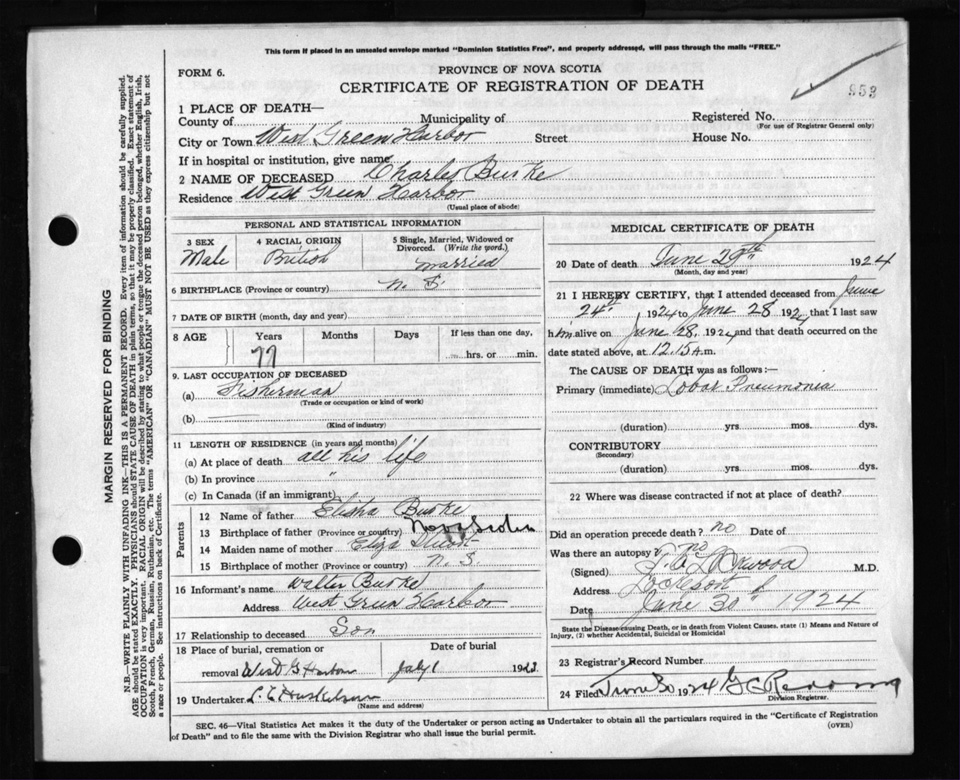 This form if placed in an unsealed envelope marked "Dominion Statistics Free", and properly addressed, will pass through the mails "FREE."
FORM 6.
PROVINCE OF NOVA SCOTIA
CERTIFICATE OF REGISTRATION OF DEATH
953
1 PLACE OF DEATH—
County of Municipality of Registered No.
(For use of Registrar General only)
City or Town West Green Harbor Street House No.
If in hospital or institution, give name
2 NAME OF DECEASED Charles Burke
Residence West Green Harbor
(Usual place of abode)
PERSONAL AND STATISTICAL INFORMATION
3 SEX 4 RACIAL ORIGIN 5 Single, Married, Widowed or Divorced. (Write the word.)
Male British married
6 BIRTHPLACE (Province or country) N. S.
7 DATE OF BIRTH (month, day and year)
8 AGE Years Months Days If less than one day,
77 hrs. or min.
9. LAST OCCUPATION OF DECEASED
(a) Fisherman
(Trade or occupation or kind of work)
(b)
(Kind of industry)
11 LENGTH OF RESIDENCE (in years and months)
(a) At place of death all his life
(b) In province "
(c) In Canada (if an immigrant)
Parents
12 Name of father Elisha Burke
13 Birthplace of father (Province or country) Nova Scotia
14 Maiden name of mother Eliza
15 Birthplace of mother N. S.
16 Informant's name Walter Burke
Address West Green Harbor
17 Relationship to deceased Son
18 Place of burial, cremation or removal Date of burial
West G Harbor July 1 192
19 Undertaker L. E.
(Name and address)
MEDICAL CERTIFICATE OF DEATH
20 Date of death June 29th 1924
(Month, day and year)
21 I HEREBY CERTIFY, that I attended deceased from June
24th 1924 to June 28 1924 that I last saw
him alive on June 28. 1924 and that death occurred on the
date stated above, at 12.15 A.m.
The CAUSE OF DEATH was as follows:—
Primary (immediate) Lobar Pneumonia
(duration) yrs. mos. dys.
CONTRIBUTORY
(Secondary)
(duration) yrs. mos. dys.
22 Where was disease contracted if not at place of death?
Did an operation precede death? no Date of
Was there an autopsy? no
(Signed) M.D.
Address Lockeport
Date June 30th 1924
State the Disease causing Death, or in death from Violent Causes, state (1) Means and Nature of
Injury, (2) whether Accidental, Suicidal or Homicidal
23 Registrar's Record Number
24 Filed June 30 1924 G C
Division Registrar.
SEC. 46—Vital Statistics Act makes it the duty of the Undertaker or person acting as Undertaker to obtain all the particulars required in the "Certificate of Registration
of Death" and to file the same with the Division Registrar who issues the burial permit.
(OVER)
MARGIN RESERVED FOR BINDING
N.B.—WRITE PLAINLY WITH UNFADING INK—THIS IS A PERMANENT RECORD. Every item of information should be carefully supplied.
AGE should be stated EXACTLY. PHYSICIANS should STATE CAUSE OF DEATH in plain terms, so that it may be properly classified. Exact statement of
OCCUPATION is very important. RACIAL ORIGIN will be described by stating to what people or tongue the deceased person belonged, whether English, Irish,
Scotch, French, German, Russian, Ruthenian, etc. The terms "AMERICAN" or "CANADIAN" MUST NOT BE USED as they express citizenship but not
a race or people. See instructions on back of Certificate.